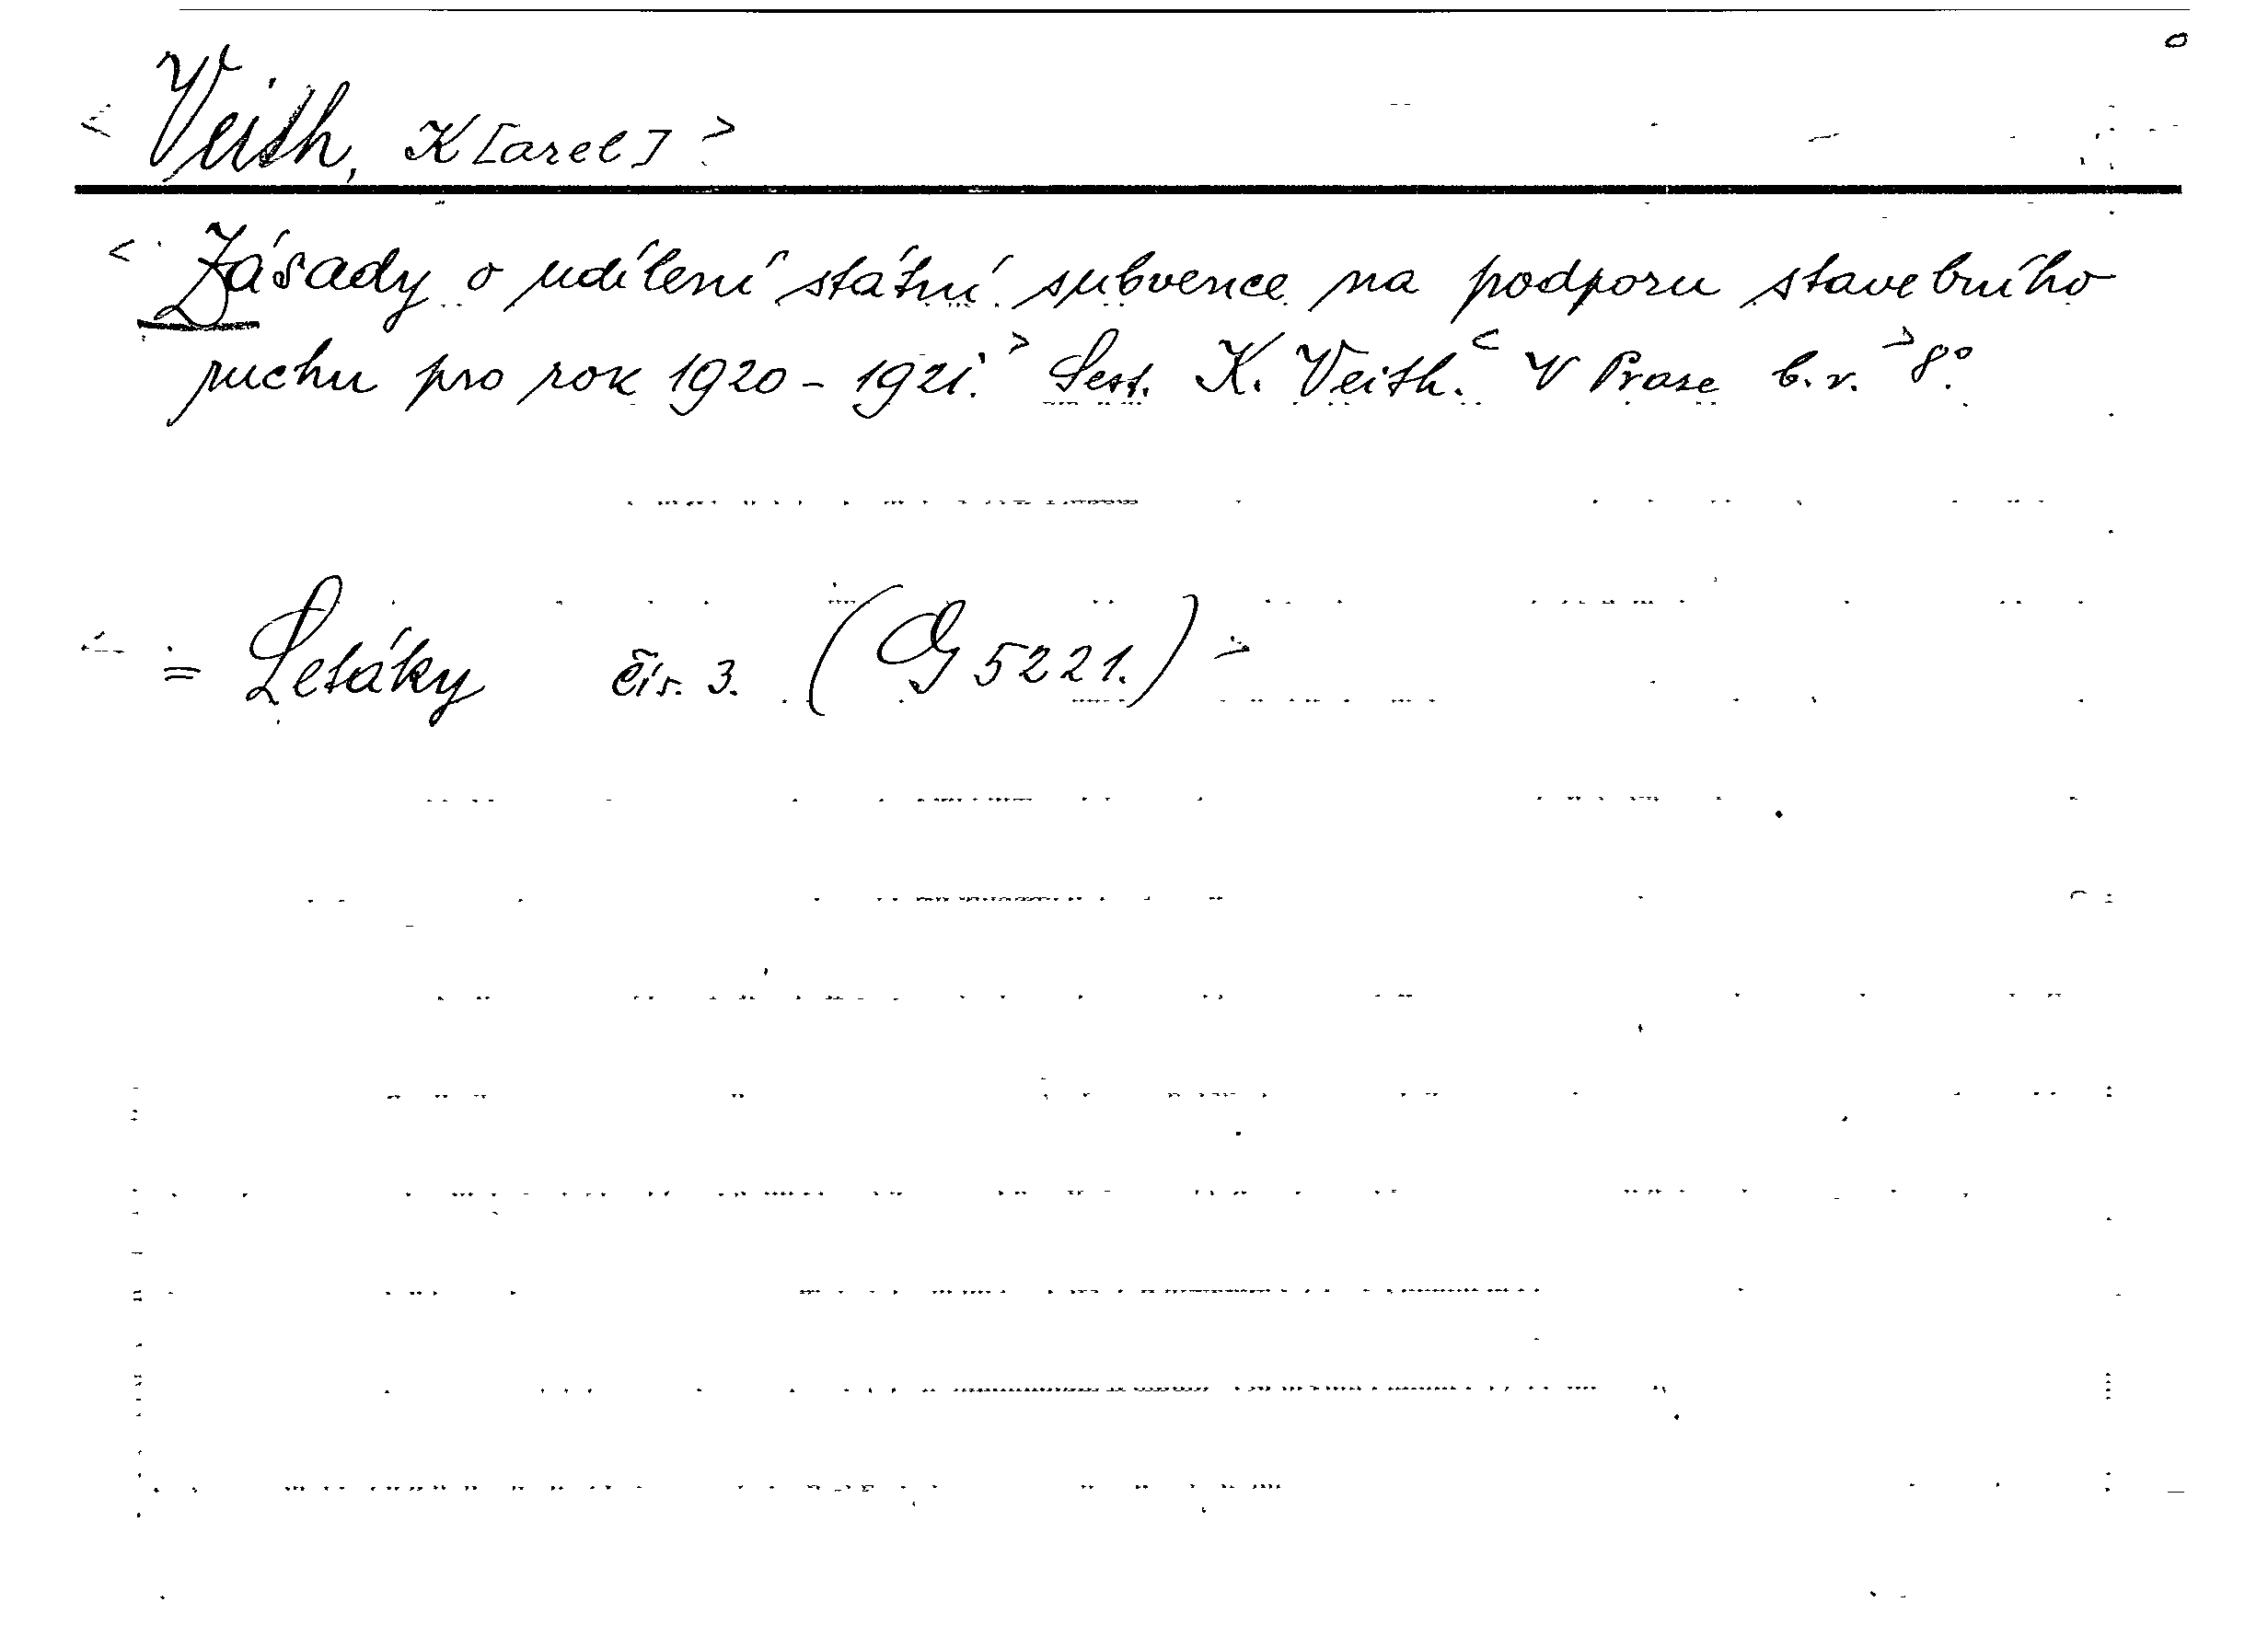 < Veith, K[arel] >
< Zásady o udílení státní subvence na podporu stavebního
ruchu pro rok 1920 - 1921. > Sest. K. Veith. < V Praze b.r. > 8°.
< = Letáky čís. 3. (G 5221.) >